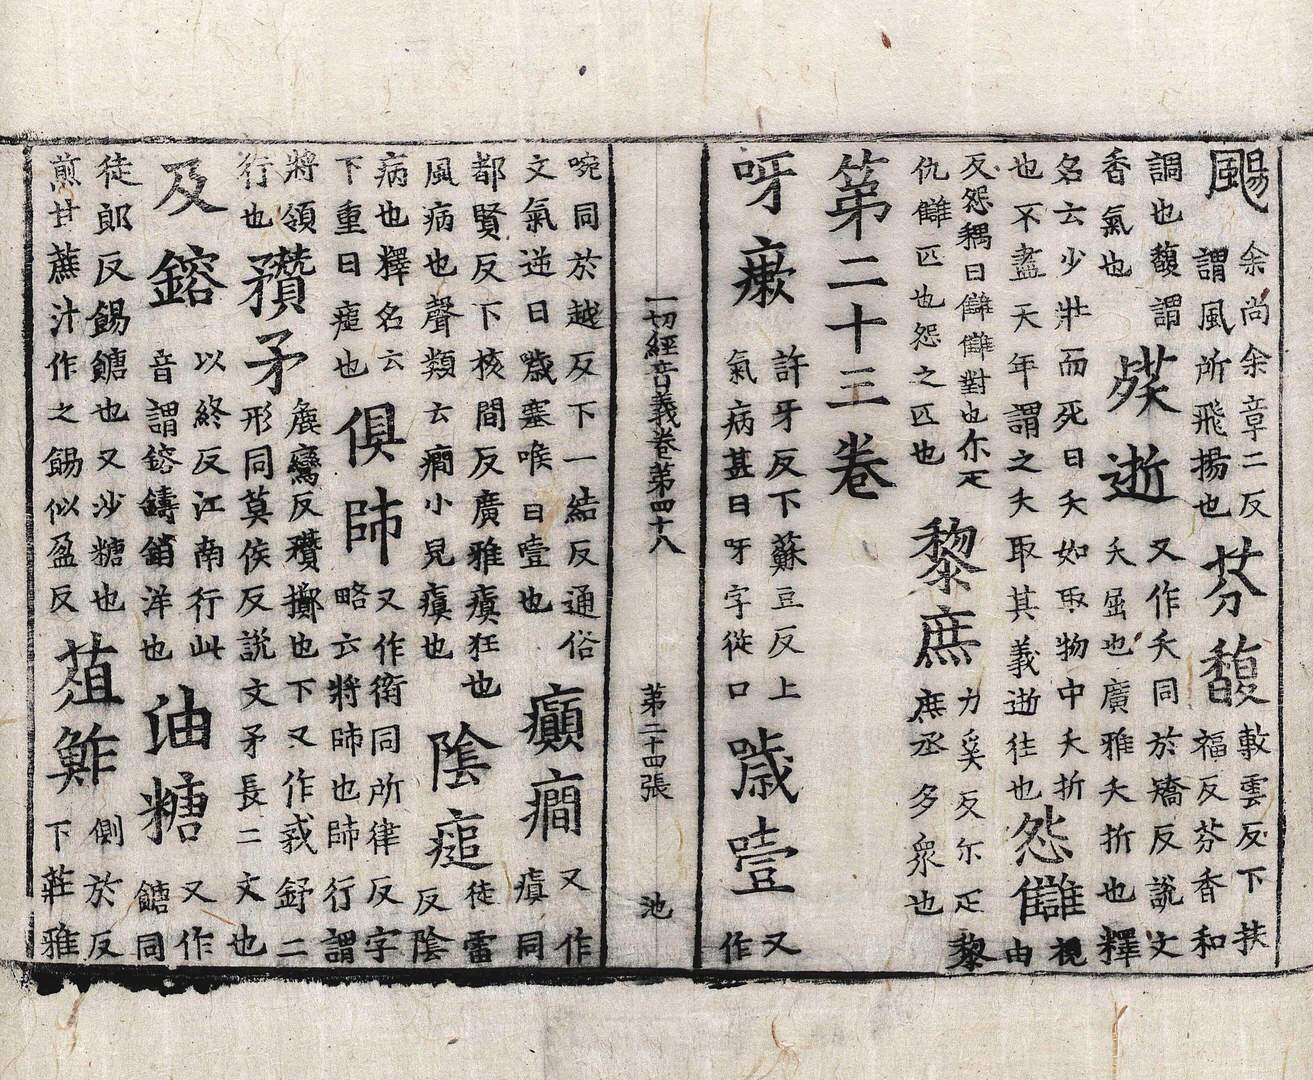 颺余尚余章二反謂風所飛揚也芬馥敷雲反下扶福反芬香和
調也馥謂香氣也殀逝又作夭同於矯反說文夭屈也廣雅夭折也釋
名云少壯而死曰夭如取物中夭折也不盡天年謂之夭取其義逝往也怨讎視由
反怨耦曰讎讎對也尒疋仇讎匹也怨之匹也黎庶力奚反尒疋黎庶丞多衆也
第二十三卷
呀瘶許牙反下蘇豆反上氣病甚曰呀字從口噦噎又作
一切經音義卷第四十八　第二十四張　池
啘同於越反下一結反通俗文氣逆曰噦塞喉曰噎也癲癇又作瘨同
都賢反下核間反廣雅瘨狂也風病也聲類云癇小兒瘨也陰㾽徒雷反陰
病也釋名云下重曰㾽也俱帥又作衛同所律反字略云將帥也帥行謂
將領行也穳矛麁鸞反穳擲也下又作二形同莫侯反說文矛長二丈也
及鎔以終反江南行此音謂鎔鑄銷洋也油糖又作餹同
徒郎反餳餹也又沙糖也煎甘蔗汁作之餳似盈反葅鮓側於反下莊雅